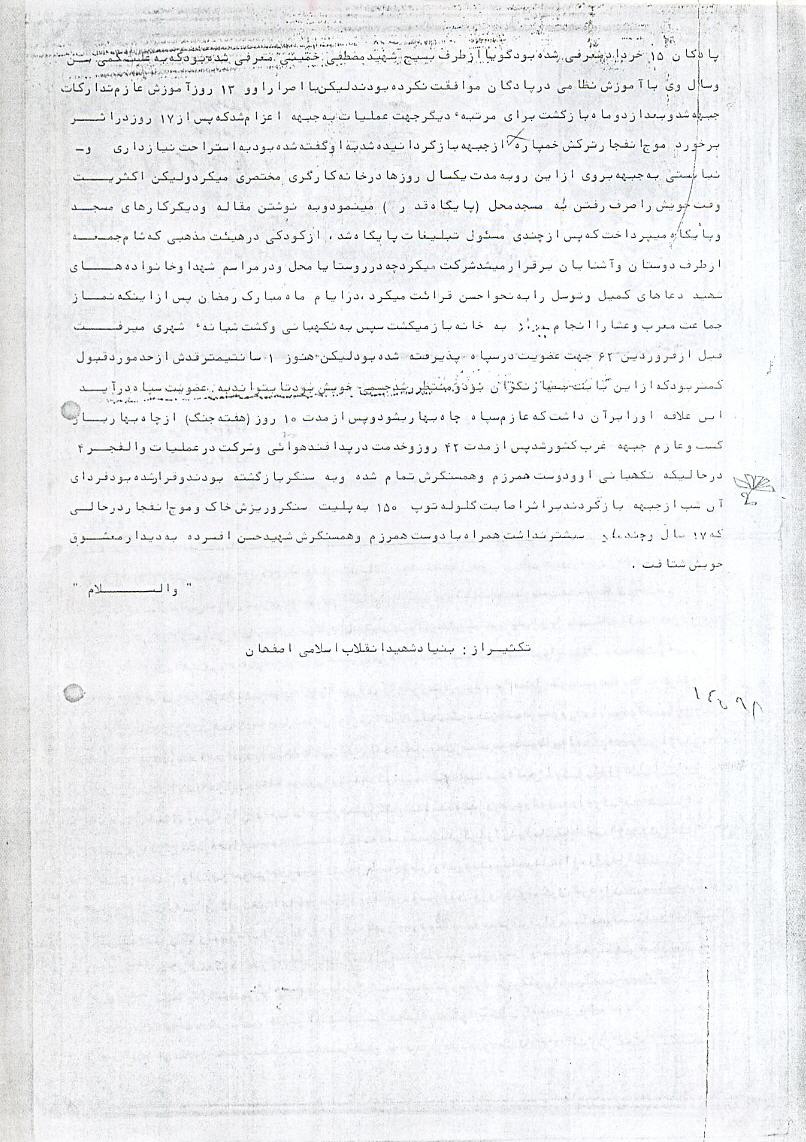 پادگان ۱۵ خرداد معرفی شده بود گویا از طرف بسیج شهید مصطفی خمینی معرفی شده بود که به علت کمی سن
وسال وی با آموزش نظامی در پادگان موافقت نکرده بودند لیکن با اصرار او و ۱۳ روز آموزش عازم تدارکات
جبهه شد و بعد از دو ماه بازگشت برای مرتبهٔ دیگر جهت عملیات به جبهه اعزام شد که پس از ۱۷ روز در اثـــر
برخورد موج انفجار ترکش خمپاره از جبهه باز گردانیده شد به او گفته شده بود به استراحت نیاز داری و-
نبایستی به جبهه بروی از این رو به مدت یکسال روزها در خانه کارگری مختصری میکرد ولیکن اکثریـــت
وقت خویش را صرف رفتن به مسجد محل (پایگاه قدر ) مینمود و به نوشتن مقاله و دیگر کارهای مسجد
و پایگاه میپرداخت که پس از چندی مسئول تبلیغات پایگاه شد ، از کودکی در هیئت مذهبی که شام جمـــعه
از طرف دوستان و آشنایان برقرار میشد شرکت میکرد چه در روستا یا محل و در مراسم شهدا و خانواده هـــای
شهید دعاهای کمیل و توسل را به نحو احسن قرائت میکرد ،در ایام ماه مبارک رمضان پس از اینکه نمـــاز
جماعت مغرب و عشا را انجام به خانه باز میگشت سپس به نگهبانی و گشت شبانهٔ شهری میرفـــت
قبل از فروردین ۶۲ جهت عضویت در سپاه پذیرفته شده بود لیکن هنوز ۱ سانتیمتر قدش از حد مورد قبول
کمتر بود که از این بابت بسیار نگران بود و منتظر رشد جسمی خویش بود تا بتواند به عضویت سپاه در آیـــد
این علاقه او را بر آن داشت که عازم سپاه چاه بهار بشود و پس از مدت ۱۰ روز (هفته جنگ) از چاه بهار بـــاز
گشت و عازم جبهه غرب کشور شد پس از مدت ۴۲ روز و خدمت در پدافند هوائی و شرکت در عملیات والفجـــر ۴
در حالیکه نگهبانی او و دوست همرزم و همسنگرش تمام شده و به سنگر بازگشته بودند و قرار شده بود فردای
آن شب از جبهه باز گردند بر اثر اصابت گلوله توپ ۱۵۰ به پلیت سنگر و ریزش خاک و موج انفجار در حالـــی
که ۱۷ سال و چند ماه بیشتر نداشت همراه با دوست همرزم و همسنگرش شهید حسن افسرده به دیدار معشـــوق
خویش شتافت .
" والســـــــلام "
تکثیـــر از : بنیاد شهید انقلاب اسلامی اصفهان